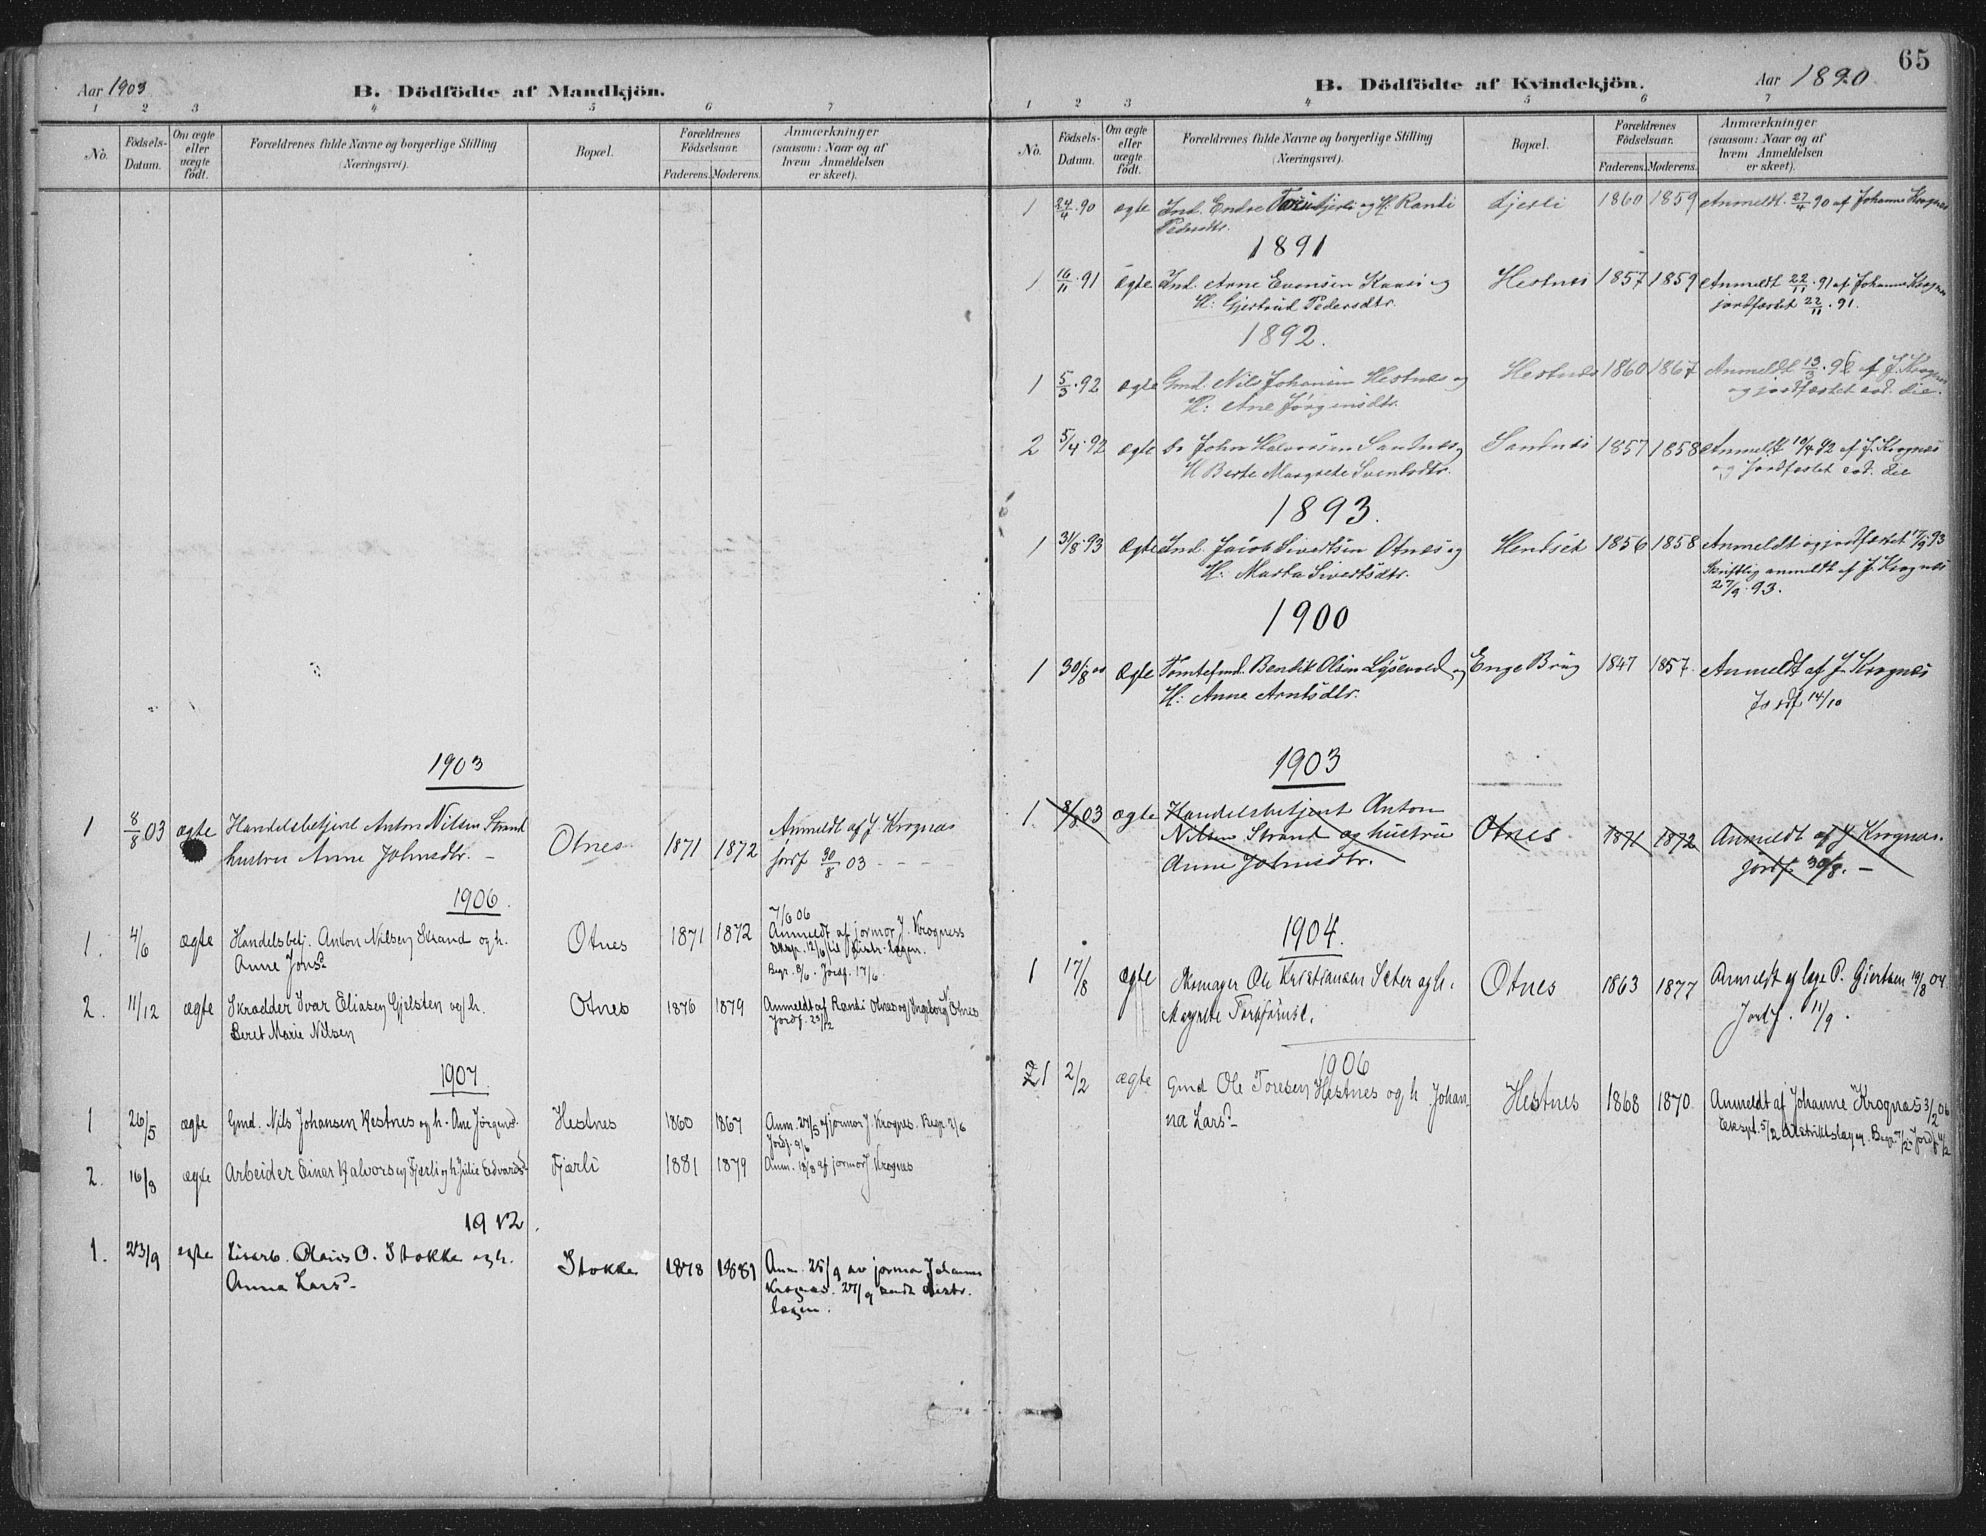 Aar 1903
B. Dödfödte af Mandkjön.
1 2 3 4 5 6 7
No.
Födsels-
Datum.
Om ægte
eller
uægte
födt.
Forældrenes fulde Navne og borgerlige Stilling
(Næringsvei).
Bopæl.
Forældrenes
Födselsaar.
Faderens. Moderens.
Anmærkninger
(saasom: Naar og af
hvem Anmeldelsen
er skeet).
1903
1 8/8 03 ægte Handelsbetjent Anton Nilsen Strand Otnes 1871 1872 Anmeldt af J. Krognes
hustru Anne Johnsdtr. - jordf 30/8 03 - - -
1906.
7/6 06
1. 4/6 ægte Handelsbetj. Anton Nilsen Strand og h. Otnes 1871 1872 Anmeldt af jormor J. Krogness
Anne Jonsd. Eksp. 12/6 til Distr.lægen.
Begr. 8/6. Jordf. 17/6.
2. 11/12 ægte Skrædder Ivar Eliasen Gjelsten og h. Otnes 1876 1879 Anmeldt af Randi Otnes og Ingeborg Otnes
Beret Marie Nilsen Jordf. 23/12
1907.
1 26/5 ægte Gmd. Nils Johansen Hestnes og h. Ane Jörgensd. Hestnes 1860 1867 Anm. 27/5 af jormor J. Krognes. Begr. 2/6
Jordf. 9/6
2. 16/8 ægte Arbeider Einer Halvorsen Fjærli og h. Julie Edvardsd. Fjærli 1881 1879 Anm. 18/8 af jormor J. Krognes
1912.
1. 23/9 egte Olaus O. Stokke og h. Stokke 1878 1881 Anm. 25/9 av jormor Johanne
Anna Larsd. Krognes. 27/9 sendt distr.
lægen.
65
Aar 1890
B. Dödfödte af Kvindekjön.
1 2 3 4 5 6 7
No.
Födsels-
Datum.
Om ægte
eller
uægte
födt.
Forældrenes fulde Navne og borgerlige Stilling
(Næringsvei).
Bopæl.
Forældrenes
Födselsaar.
Faderens. Moderens.
Anmærkninger
(saasom: Naar og af
hvem Anmeldelsen
er skeet).
1 24/4 90 ægte Ind. Endre og H: Randi 1860 1859 Anmeldt 27/4 90 af Johanne Krognes
Pedersdtr.
1891
1 16/11 91 ægte Ind. Arne Evensen og Hestnes 1857 1859 Anmeldt 22/11 91 af Johanne Krognes
H: Gjertrud Pedersdtr. jordfæstet 22/11 91.
1892.
1 5/3 92 ægte Gmd. Nils Johansen Hestnes og Hestnes 1860 1867 Anmeldt 13/3 92 af J. Krognes
H: Ane Jörgensdtr. og jordfæstet eod. die.
2 5/4 92 ægte Do John Halvorsen Sandnes og Sandnes 1857 1858 Anmeldt 10/4 92 af J. Krognes
H Berte Margrete Sventsdtr. og jordfæstet eod. die
1893.
1 31/8 93 ægte Ind. Jacob Sivertsen Otnes og Hendset 1856 1858 Anmeldt og jordfæstet 17/9 93
H: Marta Sivertsdtr. Skriftlig anmeldt af J. Krognes
27/9 93.
1900
1 30/8 00 ægte Tomtefmd. Bendik Olsen og Enge Brug 1847 1857. Anmeldt af J. Krognes
H: Anne Arntsdtr. Jordf 14/10
1903
1. 8/8 03 ægte Handelsbetjent Anton
Nilsen Strand og hustru Otnes 1871 1872 Anmeldt af J. Krognes.
Anne Johnsdtr. jordf. 30/8. -
1904.
1 17/8 ægte Ole Kristiansen Seter og h. Otnes 1863 1877 Anmeldt af læge P. Gjertsen 19/8 04.
Magrete Jordf. 11/9.
1906
1 2/2 ægte Gmd Ole Toresen Hestnes og h Johan- Hestnes 1868 1870 Anmeldt af Johanne Krognæs 3/2 06
na Larsd. Eksp. 5/2 distriktslægen. Begr. 7/2. Jordf.